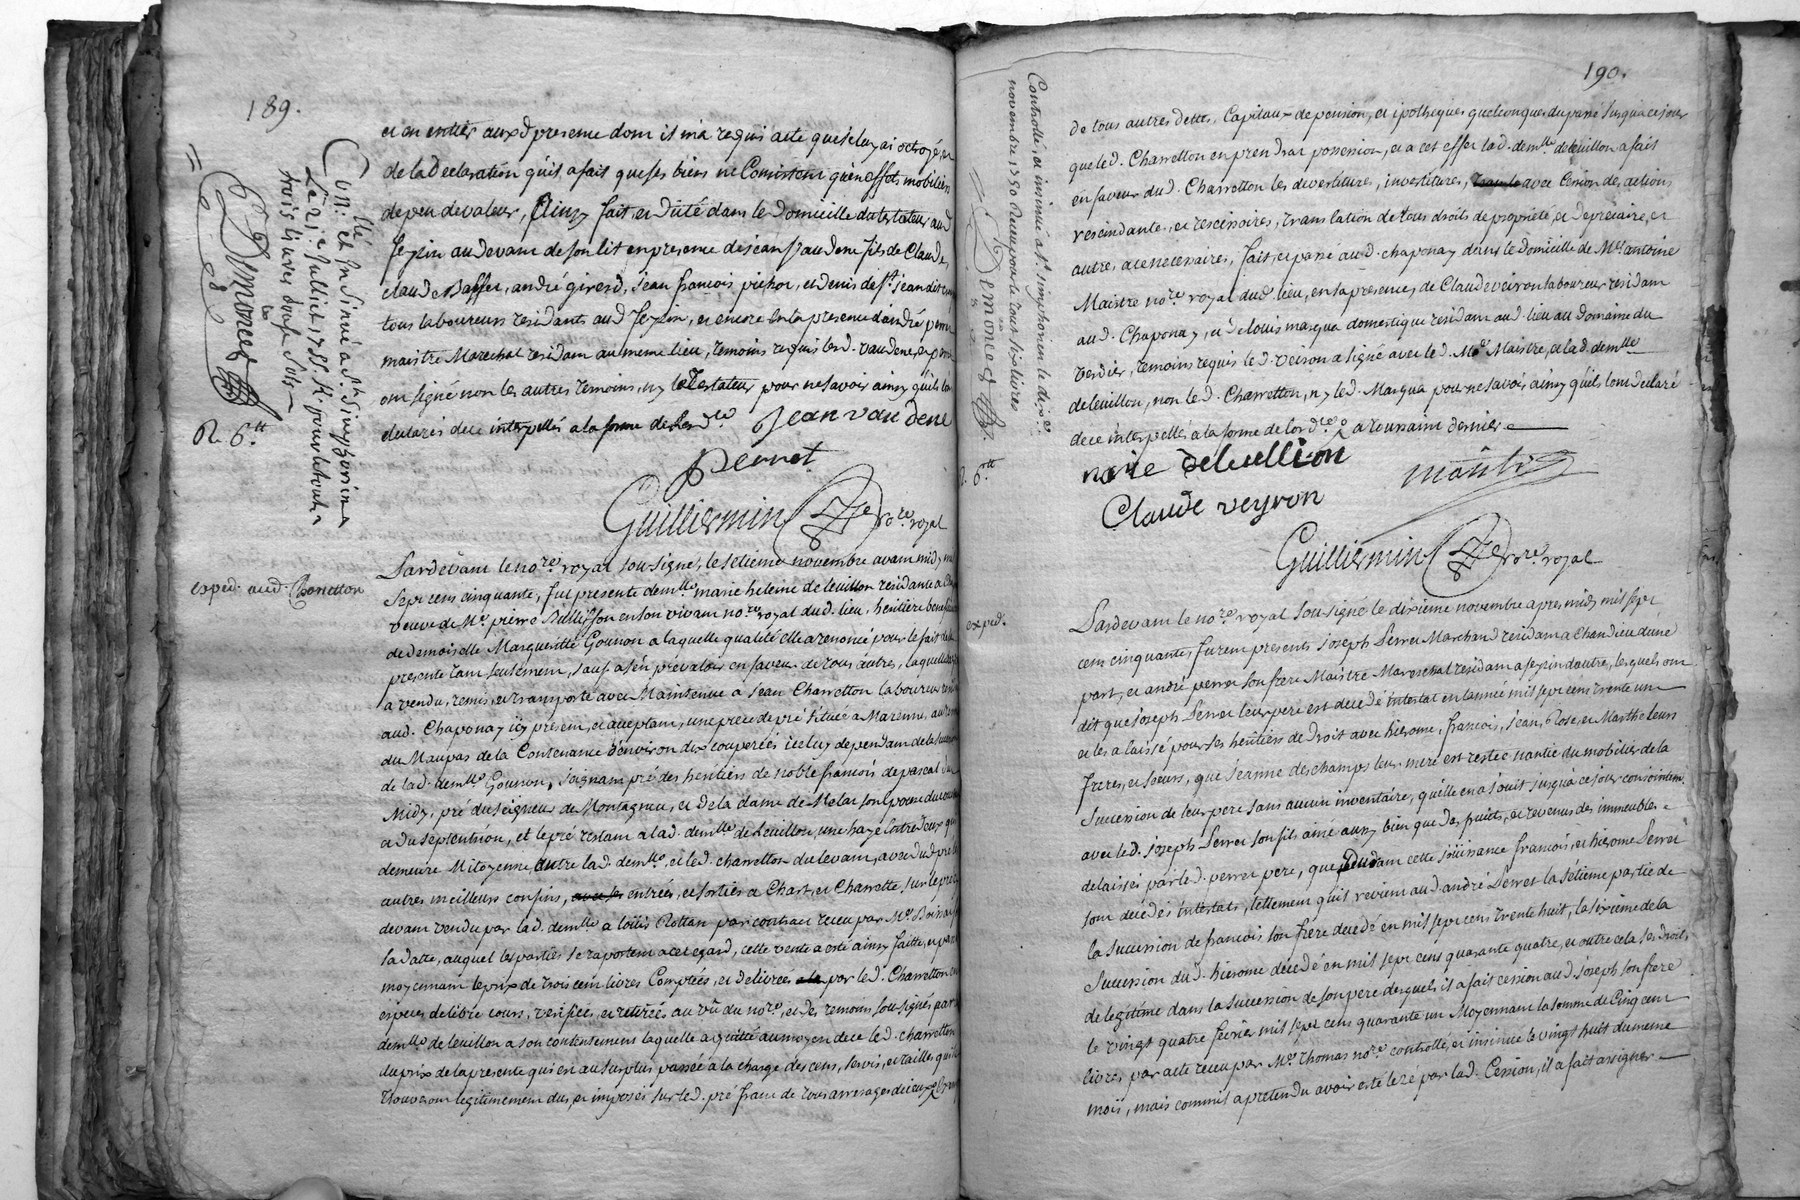 189.
et en entier aux d presence dont il m'a requi acte que je luy ai octroyé, et
de la Declaration qu'il a fait que ses biens ne Consistent qu'en effets mobiliers
de peu de valeur, Ainsy fait, et Dicté dans le Domicille du testateur aud
fezin au devant de son lit en presence de jean vaudene fils de Claude,
claude Baffer, andré girerd, jean françois pichot, et denis de st jean
tous laboureurs residants aud fezin, et encore en la presence d'andré perret
maistre Marechal residant au meme lieu, temoins requis led. vaudene, et perret
ont signé non les autres temoins, ny le Testateur pour ne savoir ainsy qu'ils l'ont
declarés de ce interpellés a la forme de l'ord.ce Jean vaudene
perret
Guilliermin no.re royal
Con.llé et Insinué a St Simphorien
Le 21e Juillet 1755 R. pour le tout
trois livres douze sols
Demoncet
R. 6.tt
exped. aud. Charretton
Pardevant le no.re royal sousigné, le sétieme novembre avant midy mil
sept cens cinquante, fut presente dem.lle marie heleine de leuillon residante a
veuve de M.e pierre Bullifson en son vivant no.re royal dud. lieu, heritière beneficiaire
de demoiselle Margueritte Gounon a laquelle qualité elle a renoncé pour le fait de la
presente tant seulement, sauf a s'en prevaloir en faveur de tous autres, laquelle
a vendu, remis, et transporté avec Maintenue a Jean Charretton laboureur
aud. Chaponay icy present, et acceptant, une piece de pré située a Marenne, au
du Maupas de la Contenance d'environ dix couperées icelui dependant de la
de lad. dem.lle Gounon, joignant pré des heritiers de noble françois de pascal
Midy, pré du seigneur de Montagneu, et de la dame de Melat
a du septentrion, et le pré restant a lad. dem.lle de leuillon, une haye entre deux qui
demeure Mitoyenne entre lad. dem.lle, et led. charretton du levant, avec dud. pré
autres meilleurs confins, avec ses entrées, et sorties a Chart, et Charrette, sur le pré
devant vendu par lad. dem.lle a loüis Rottan par contract receu par M.e
sa datte, auquel les parties se raportent a cet egard, cette vente a esté ainsy faitte, et
moyennant le prix de trois cent livres Comptées, et delivrées par led. Charretton
especes de libre cours, verifiées, et retirées au vû du no.re, et des temoins sousignés par
dem.lle de leuillon a son contentement laquelle a quitté au moyen de ce led. charretton
du prix de la presente qui est au surplus passée a la charge des cens, servis, et tailles qui
trouveront legitimement dus, et imposés sur led. pré franc de tous arrerages d'iceux
190.
de tous autres dettes, Capitaux de pension, et ipotheques quelconques du passé jusqu'a ce jour
que led. Charretton en prendra possession, et a cet effet lad. dem.lle de leuillon a fait
en faveur dud. Charretton les devestiture, investiture, avec Cession des actions
rescindante, et rescisoires, translation de tous droits de proprieté, et de precaire, et
autres a ce necessaires, fait, et passé aud. chaponay dans le domicille de M.e antoine
Maistre no.re royal dud. lieu, en sa presence, de Claude veiron laboureur residant
aud. Chaponay, et de louis marqua domestique residant aud. lieu au domaine du
verdier, temoins requis led. veiron a signé avec led. M.e Maistre, et lad. dem.lle
de leuillon, non led. Charretton, ny led. Marqua pour ne savoir ainsy qu'ils l'ont declaré
de ce interpellés a la forme de l'ord.ce
marie deleullion
Claude veyron
Guilliermin no.re royal
Controllé, et insinué a St simphorien le dix
novembre 1750 Receu pour le tout six livres
Demoncet
R. 6.tt
exped.
Pardevant le no.re royal sousigné le dixieme novembre apres midy mil sept
cens cinquante, furent presents Joseph Perret Marchand residant a Chandieu d'une
part, et andré perret son frere Maistre Marechal residant a fezin d'autre, lesquels ont
dit que joseph Perret leur pere est decedé intestat en l'année mil sept cens trente un
et les a laissé pour ses heritiers de Droit avec hierome, francois, jean, Rose, et Marthe leurs
freres, et soeurs, que jeanne deschamps leur mere est restée nantie du mobilier de la
Succession de leur pere sans aucun inventaire, qu'elle en a jouit jusqu'a ce jour conjointem.t
avec led. joseph Perret son fils ainé aussy bien que des fruits, et revenus des immeubles
delaissés par led. perret pere, que pendant cette joüissance francois, et hierome Perret
sont décédés intestats, tellement qu'il revient aud andré Perret la sétieme partie de
la succession de francois son frére decedé en mil sept cens trente huit, la sixieme de la
Succession dud. hierome décedé en mil sept cens quarante quatre, et outre cela ses droits
de legitime dans la succession de son pere desquels il a fait cession aud. joseph son frere
le vingt quatre fevrier mil sept cens quarante un Moyennant la somme de Cinq cent
livres par acte receu par M.e Thomas no.re controllé, et insinué le vingt huit du meme
mois, mais comm'il a pretendu avoir esté lezé par lad. Cession, il a fait assigner